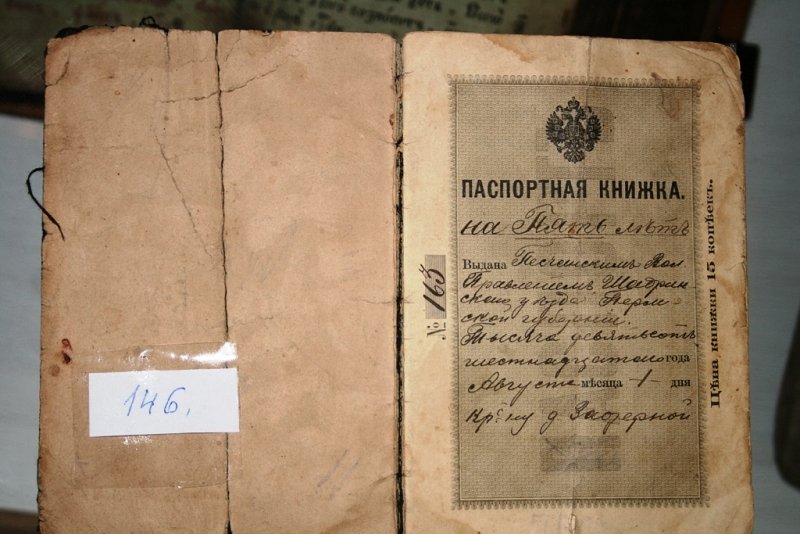 146.
№ 163
ПАСПОРТНАЯ КНИЖКА.
на Пять лѣтъ
Выдана Песчанскимъ Вол
Правленіемъ Шадрин
скаго уѣзда Перм
ской губерніи.
Тысяча девятьсотъ
шестнадцатаго года
Августа мѣсяца 1 дня
кр-ну д Заозерной
Цѣна книжки 15 копѣекъ.